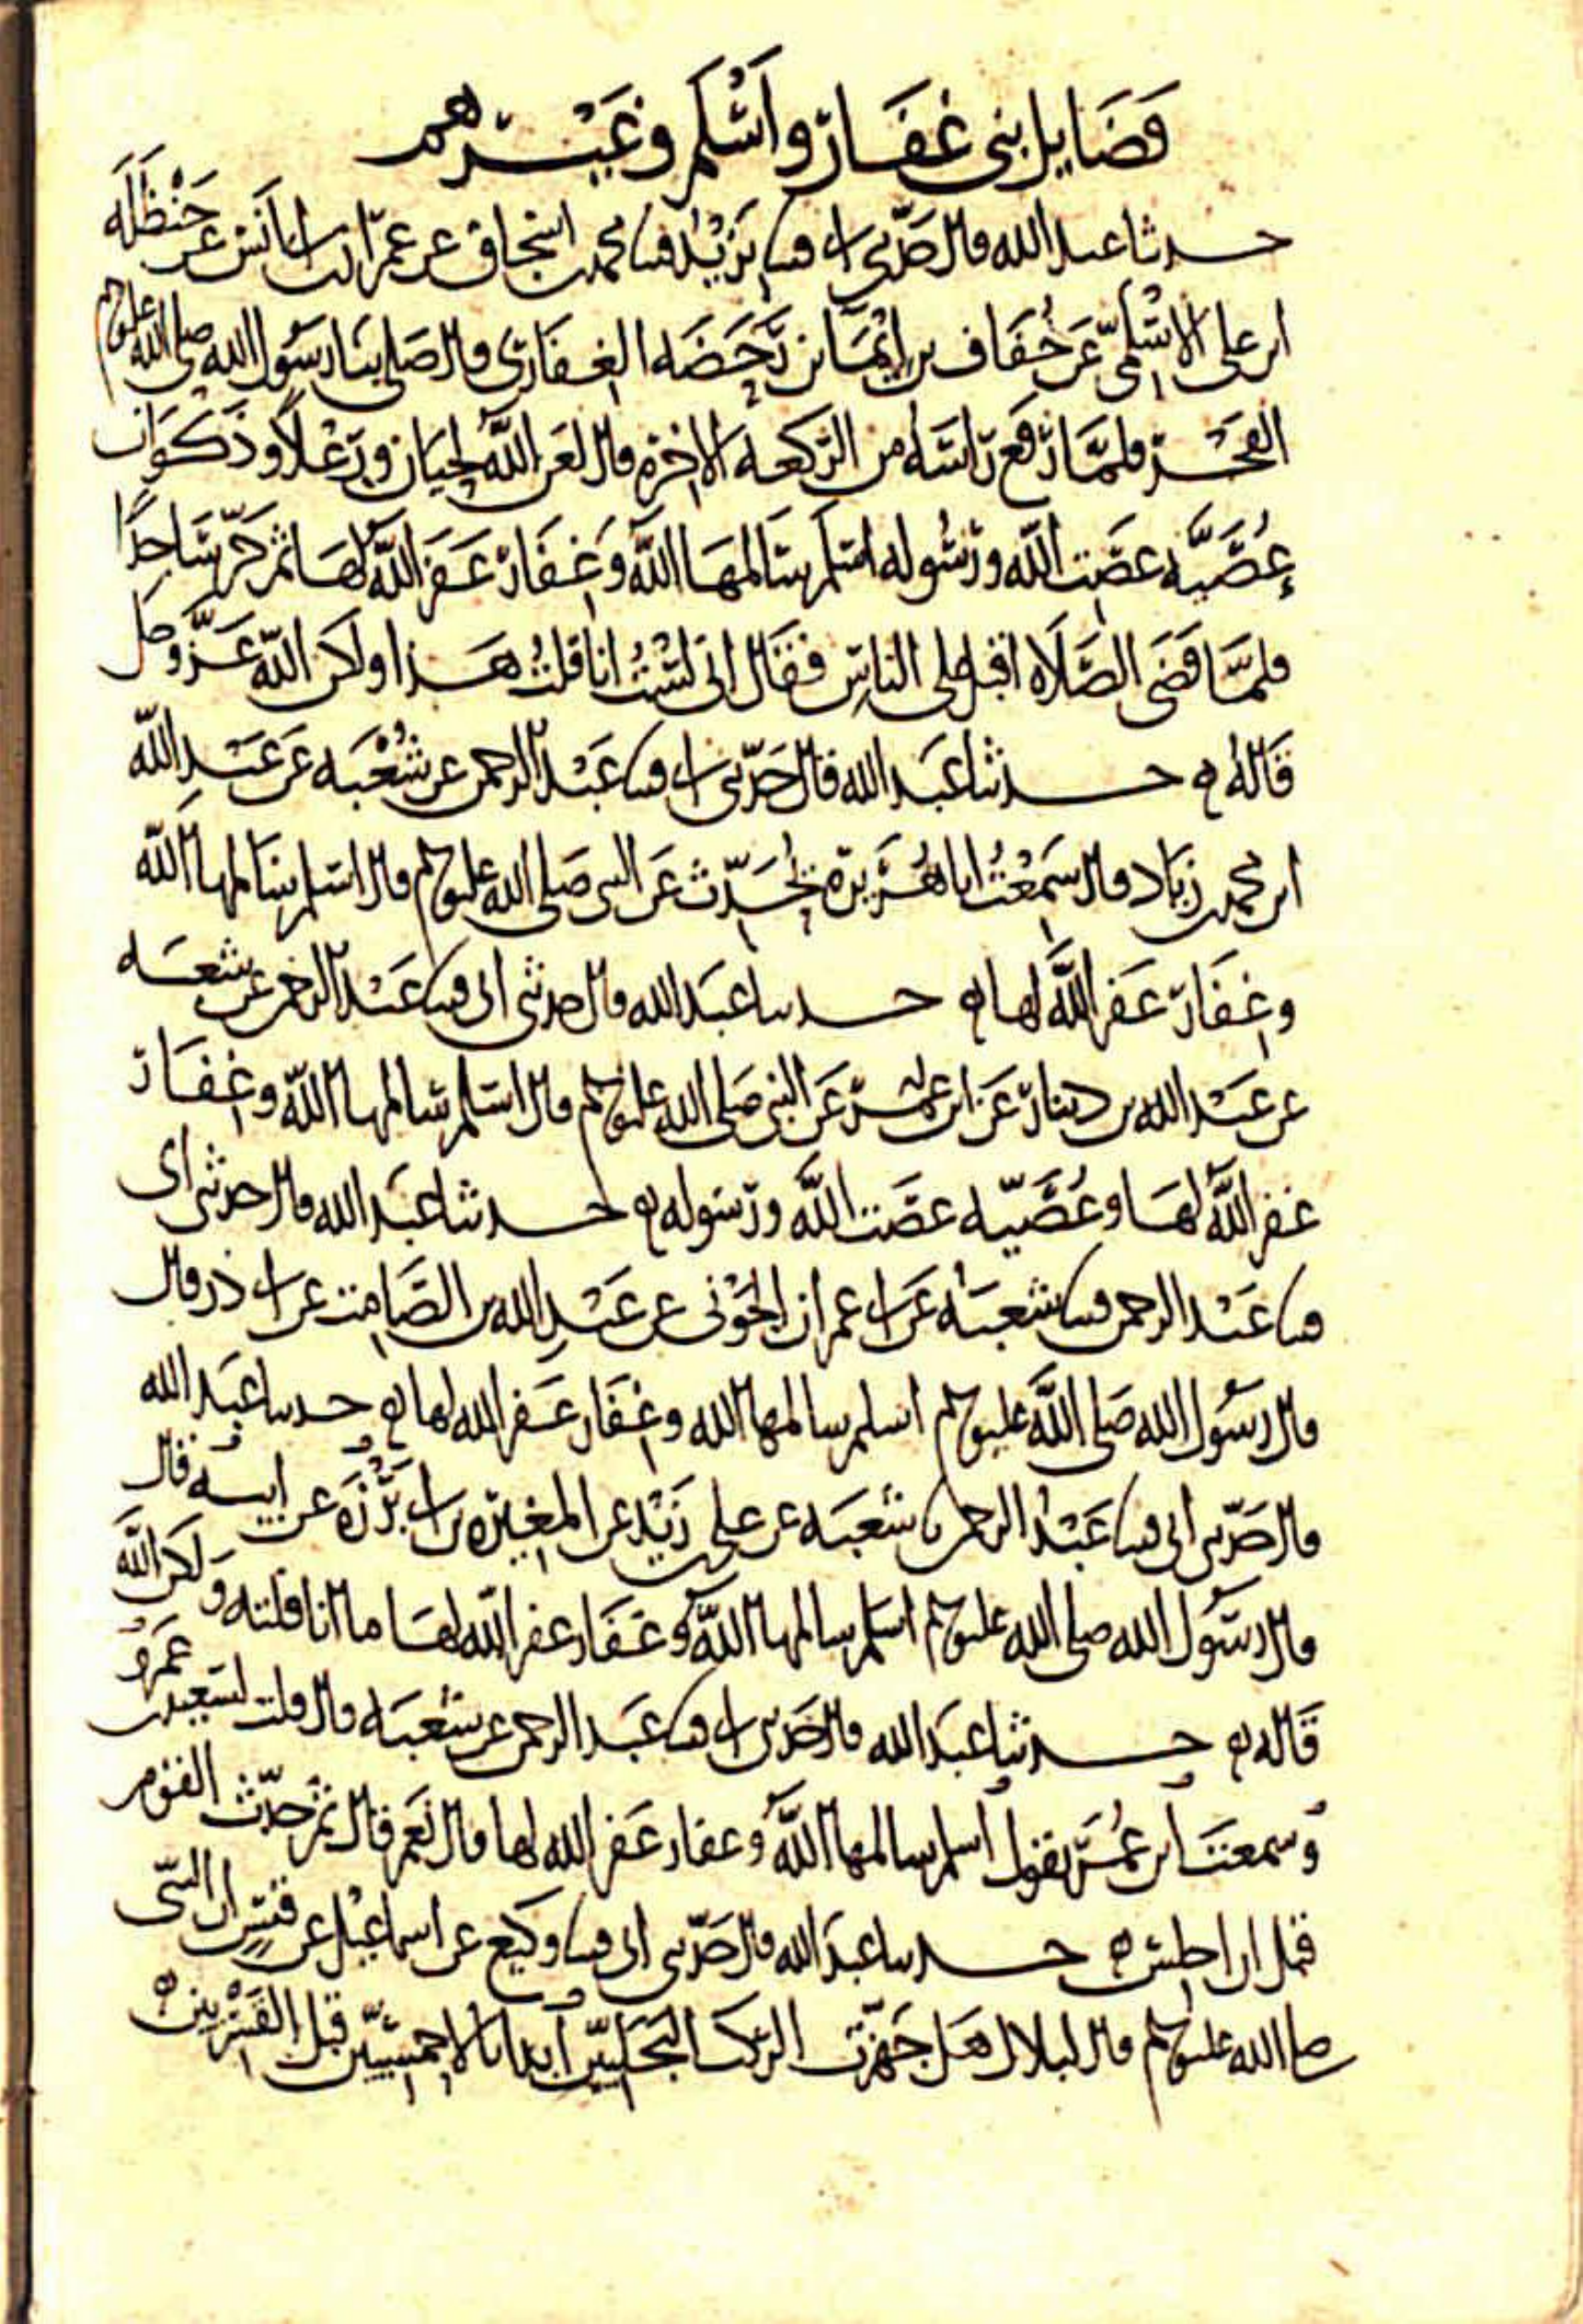 فضايل بني غفار واسلم وغيرهم
حدثنا عبد الله قال حدثني ابي قثنا يزيد قثنا محمد بن اسحاق عن عمران بن ابي انس عن حنظلة
ابن علي الاسلمي عن خفاف بن ايما بن رحضه الغفاري قال صلى بنا رسول الله صلى الله عليه وسلم
الفجر فلما رفع راسه من الركعه الاخرة قال لعن الله لحيان ورعلا وذكوان
وعصيه عصت الله ورسوله اسلم سالمها الله وغفار غفر الله لها ثم خر ساجدا
فلما قضى الصلاه اقبل على الناس فقال اني لست انا قلت هذا ولكن الله عز وجل
قاله ه حدثنا عبد الله قال حدثني ابي قثنا عبد الرحمن عن شعبه عن عبد الله
ابن محمد بن زياد قال سمعت ابا هريرة يحدث عن النبي صلى الله عليه وسلم قال اسلم سالمها الله
وغفار غفر الله لها ه حدثنا عبد الله قال حدثني ابي قثنا عبد الرحمن عن شعبه
عن عبد الله بن دينار عن ابن عمر عن النبي صلى الله عليه وسلم قال اسلم سالمها الله وغفار
غفر الله لها وعصيه عصت الله ورسوله ه حدثنا عبد الله قال حدثني ابي
قثنا عبد الرحمن قثنا شعبه عن ابي عمران الجوني عن عبد الله بن الصامت عن ابي ذر قال
قال رسول الله صلى الله عليه وسلم اسلم سالمها الله وغفار غفر الله لها ه حدثنا عبد الله
قال حدثني ابي قثنا عبد الرحمن نا شعبه عن علي بن زيد عن المغيره بن ابي برزه عن ابيه قال
قال رسول الله صلى الله عليه وسلم اسلم سالمها الله وغفار غفر الله لها ما انا قلته ولكن الله
قاله ه حدثنا عبد الله قال حدثني ابي قثنا عبد الرحمن عن شعبه قال قلت لسعيد بن عمرو
وسمعت ابن عمر يقول اسلم سالمها الله وغفار غفر الله لها قال نعم قال ثم حدث القوم
قبل ان اجلس ه حدثنا عبد الله قال حدثني ابي قثنا وكيع عن اسماعيل عن قيس ان النبي
صلى الله عليه وسلم قال لبلال هل جهزت الركب البجليين ابدا بالاحمسيين قبل القسريين ه